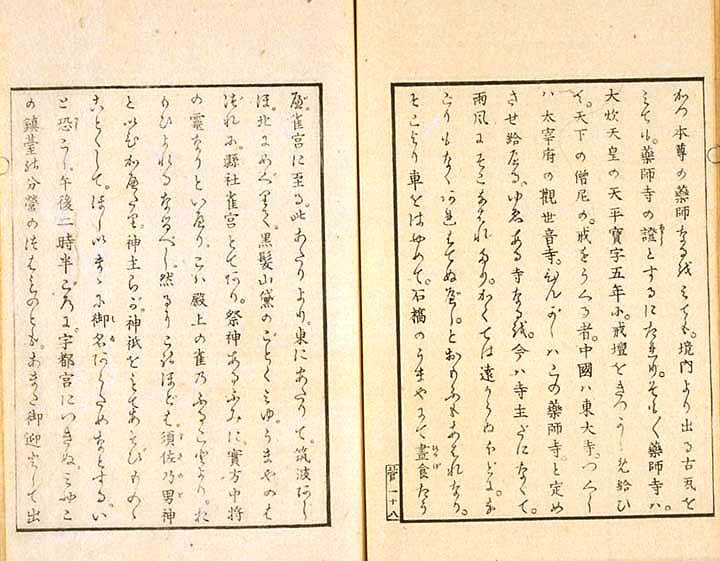 かつ本尊の藥師なるをみても。境内より出る古瓦を
みても。藥師寺の證とするにたれり。そも〱藥師寺ハ。
大炊天皇の天平寶字五年に。戒壇をきつかしめ給ひ
て。天下の僧尼の。戒をうくる者。中國ハ東大寺。つくし
ハ太宰府の觀世音寺。ひんかしハこの藥師寺。と定め
させ給へる。ゆゑある寺なるを。今ハ寺主だになくて。
雨風にそこなはれたり。かくては遠からぬほどに。な
こりもなく はてぬべし。とおもふもあはれなり。
そこより車をはやめて。石橋のうまやにて晝食たう
十八
べ。雀宮に至る。此あたりより。東にあたりて。筑波
北に 黒髮山黛のごとくみゆ。うまやのは
づれに。縣社雀宮とてあり。祭神あるふみに。實方中將
の靈なりといへり。こハ殿上の雀乃ふるごとより。お
もひよれるなるべし。然るに ほどは。須佐乃男神
といひかへたり。神主らが。神祇をもてあそびものゝ
ごとくして。ほしいまゝに御名あらためなどする。い
と恐こし。午後二時半ごろに。宇都宮につきぬ。みやこ
の鎮臺の分營のつはものども。あまた御迎 して出